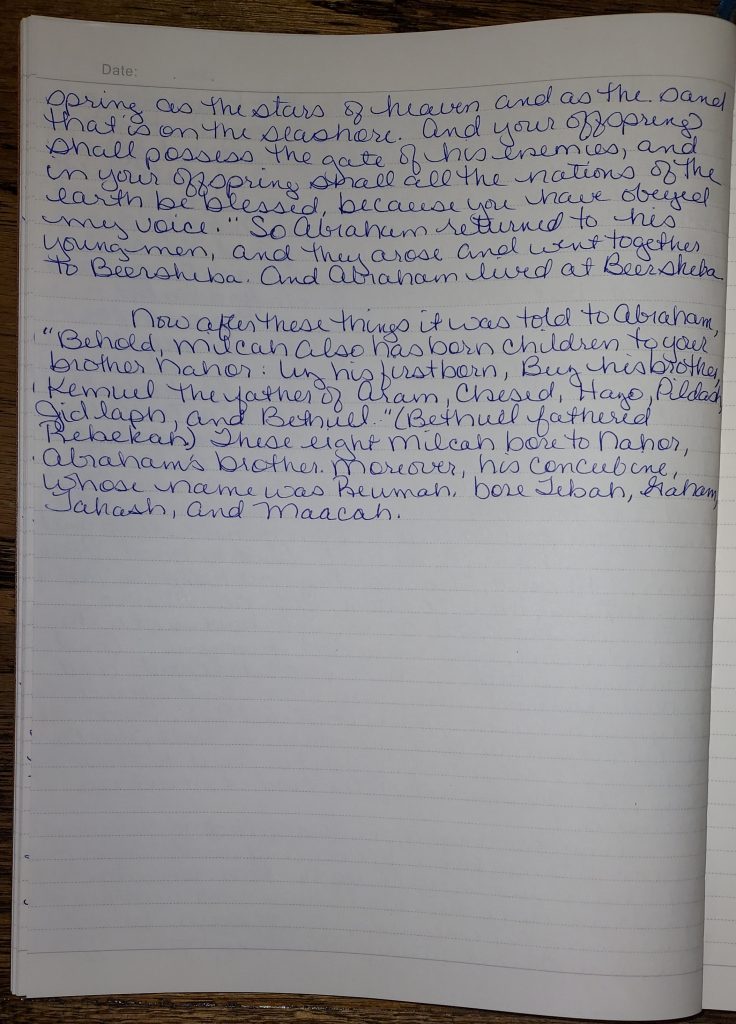 Date:
spring as the stars of heaven and as the sand
that is on the seashore. And your offspring
shall possess the gate of his enemies, and
in your offspring shall all the nations of the
earth be blessed, because you have obeyed
my voice." So Abraham returned to his
young men, and they arose and went together
to Beersheba. And Abraham lived at Beersheba
Now after these things it was told to Abraham,
"Behold, Milcah also has born children to your
brother Nahor: Uz his firstborn, Buz his brother,
Kemuel the father of Aram, Chesed, Hazo, Pildash,
Jidlaph, and Bethuel." (Bethuel fathered
Rebekah) These eight Milcah bore to Nahor,
Abraham's brother. Moreover, his concubine,
whose name was Reumah, bore Tebah, Graham,
Tahash, and Maacah.